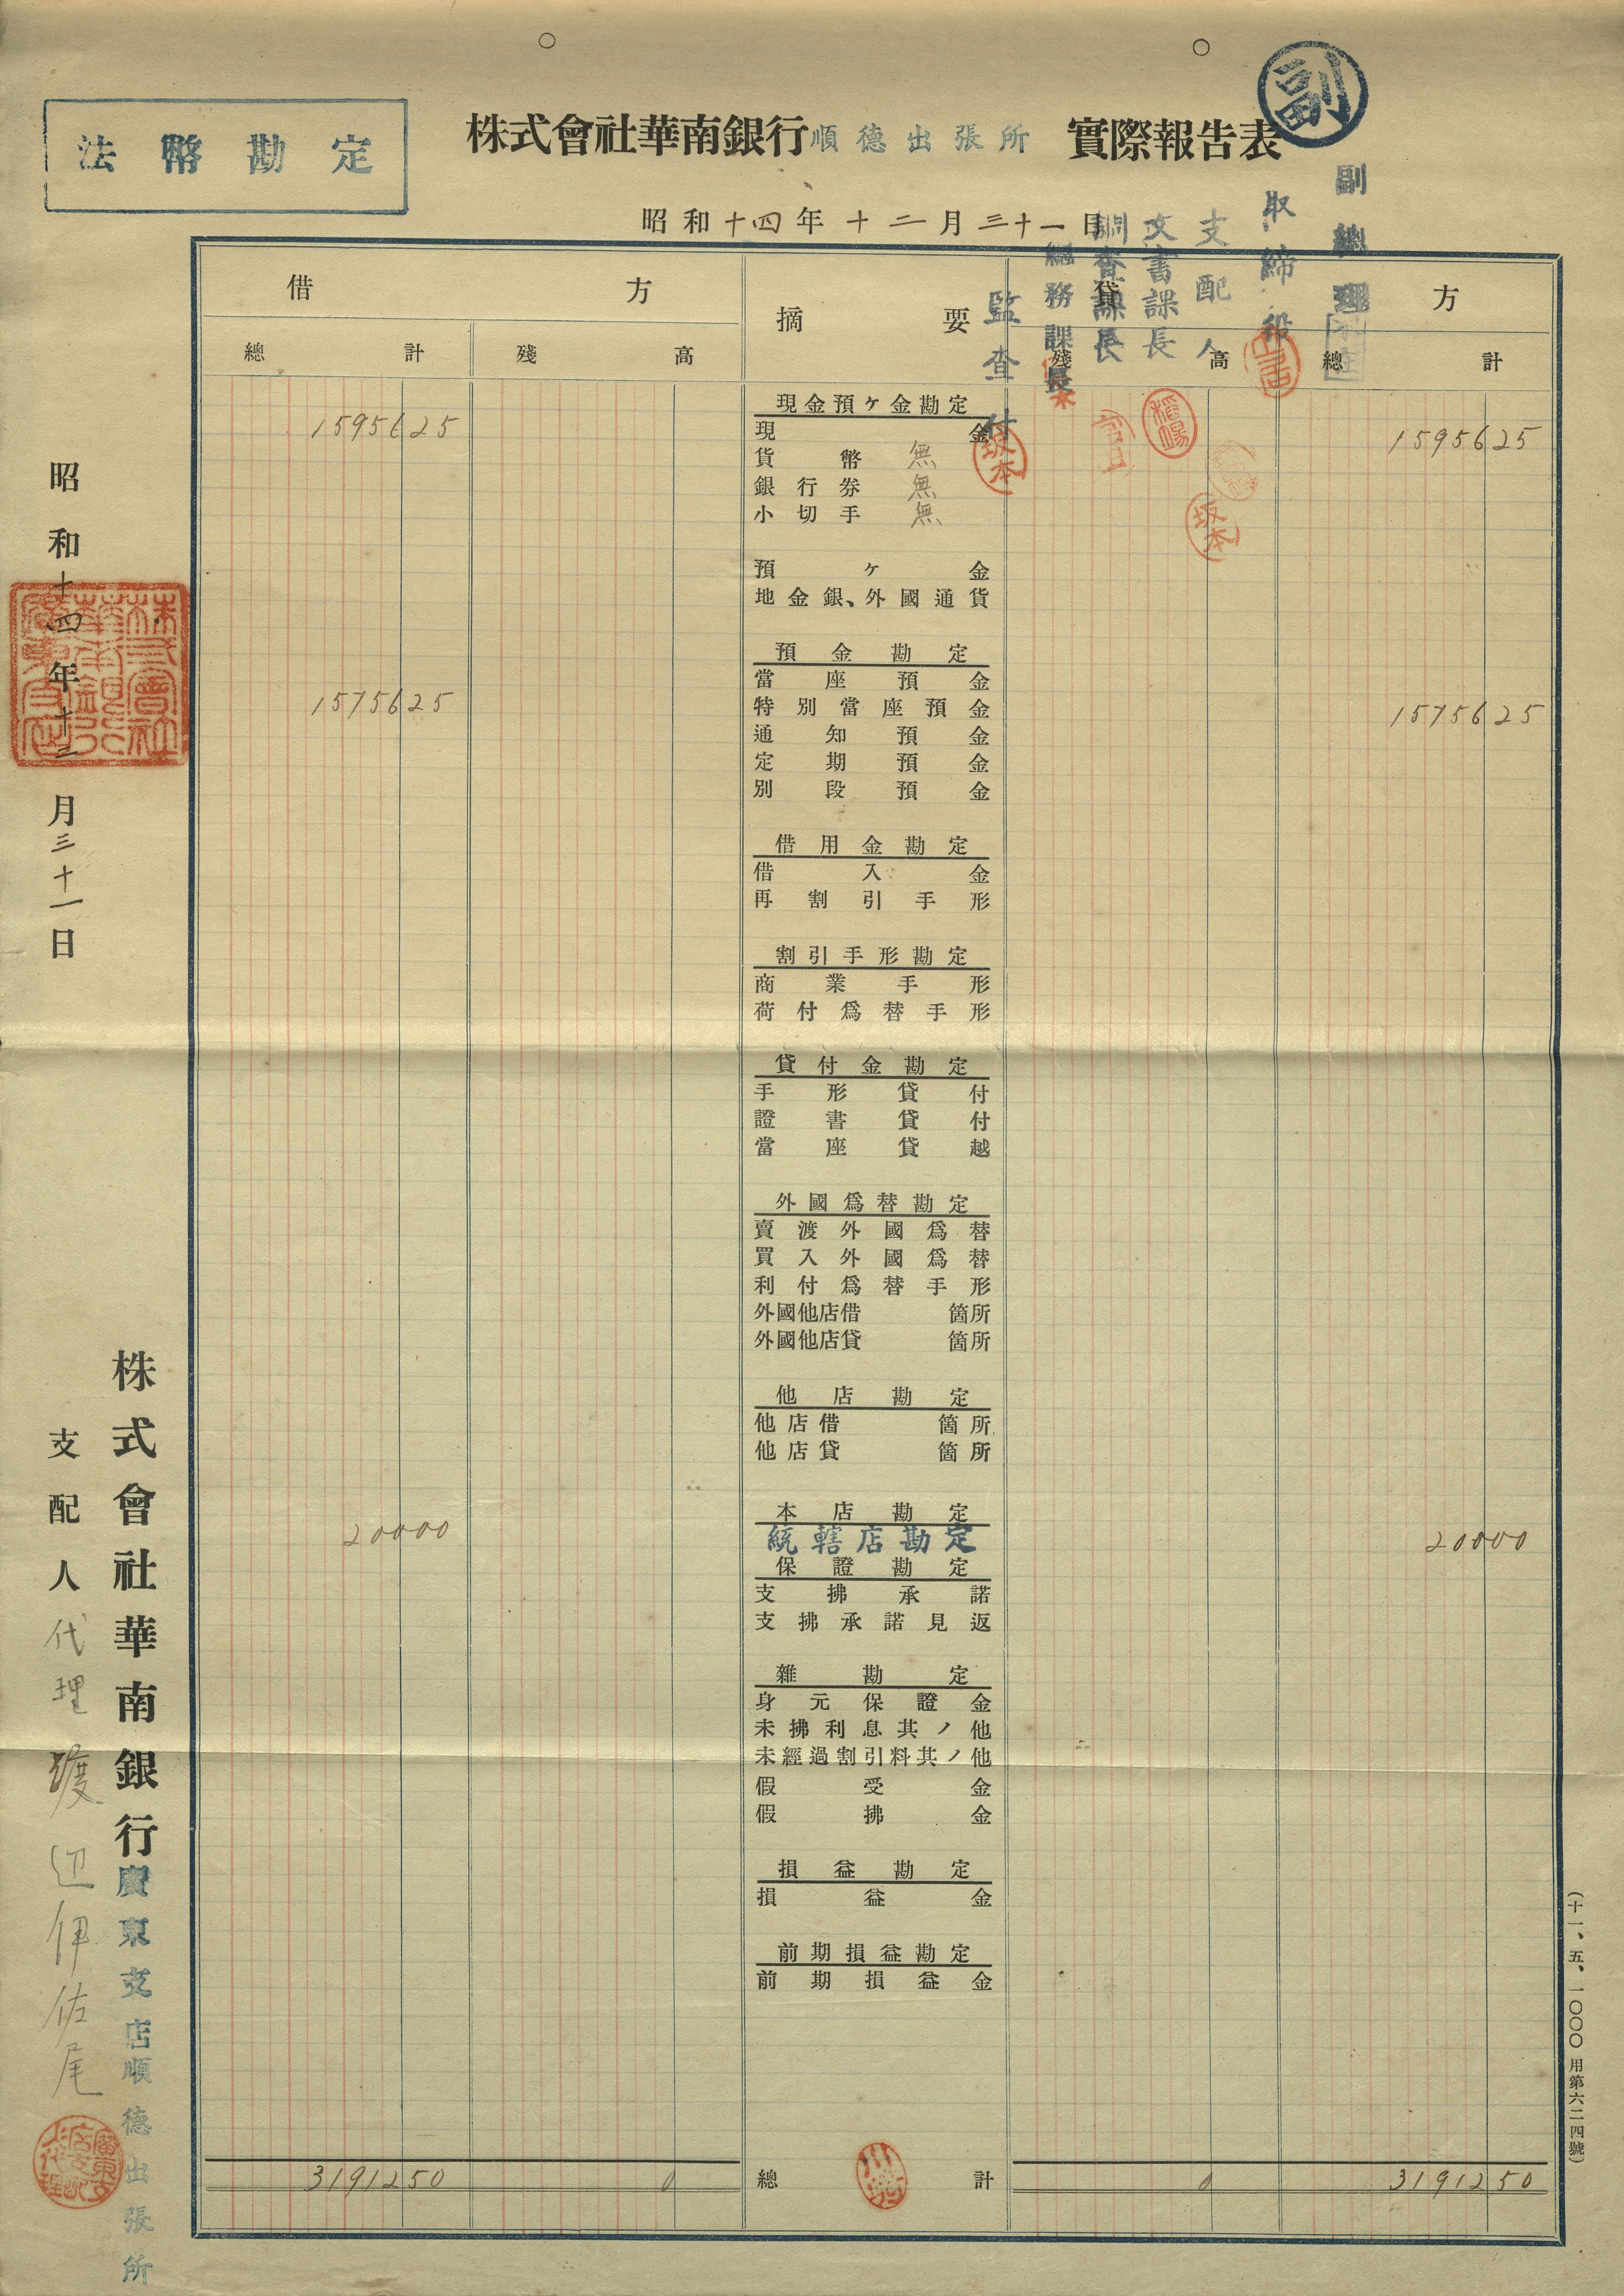 副
法幣勘定
株式會社華南銀行順德出張所 實際報告表
昭和十四年十二月三十一日
副總理
取締役
支配人
文書課長
調査課長
總務課長
監査付
借方 摘要 貸方
總計 殘高 殘高 總計
現金預ヶ金勘定
1595625 現金 1595625
貨幣 無
銀行券 無
小切手 無
預ヶ金
地金銀、外國通貨
預金勘定
當座預金
1575625 特別當座預金 1575625
通知預金
定期預金
別段預金
借用金勘定
借入金
再割引手形
割引手形勘定
商業手形
荷付爲替手形
貸付金勘定
手形貸付
證書貸付
當座貸越
外國爲替勘定
賣渡外國爲替
買入外國爲替
利付爲替手形
外國他店借 箇所
外國他店貸 箇所
他店勘定
他店借 箇所
他店貸 箇所
本店勘定
20000 統轄店勘定 20000
保證勘定
支拂承諾
支拂承諾見返
雜勘定
身元保證金
未拂利息其ノ他
未經過割引料其ノ他
假受金
假拂金
損益勘定
損益金
前期損益勘定
前期損益金
3191250 0 總計 0 3191250
坂本
坂本
昭和十四年十二月三十一日
株式會社華南銀行廣東支店順德出張所
支配人代理 渡辺伊佐尾
(十一、五、一〇〇〇 用第六二四號)